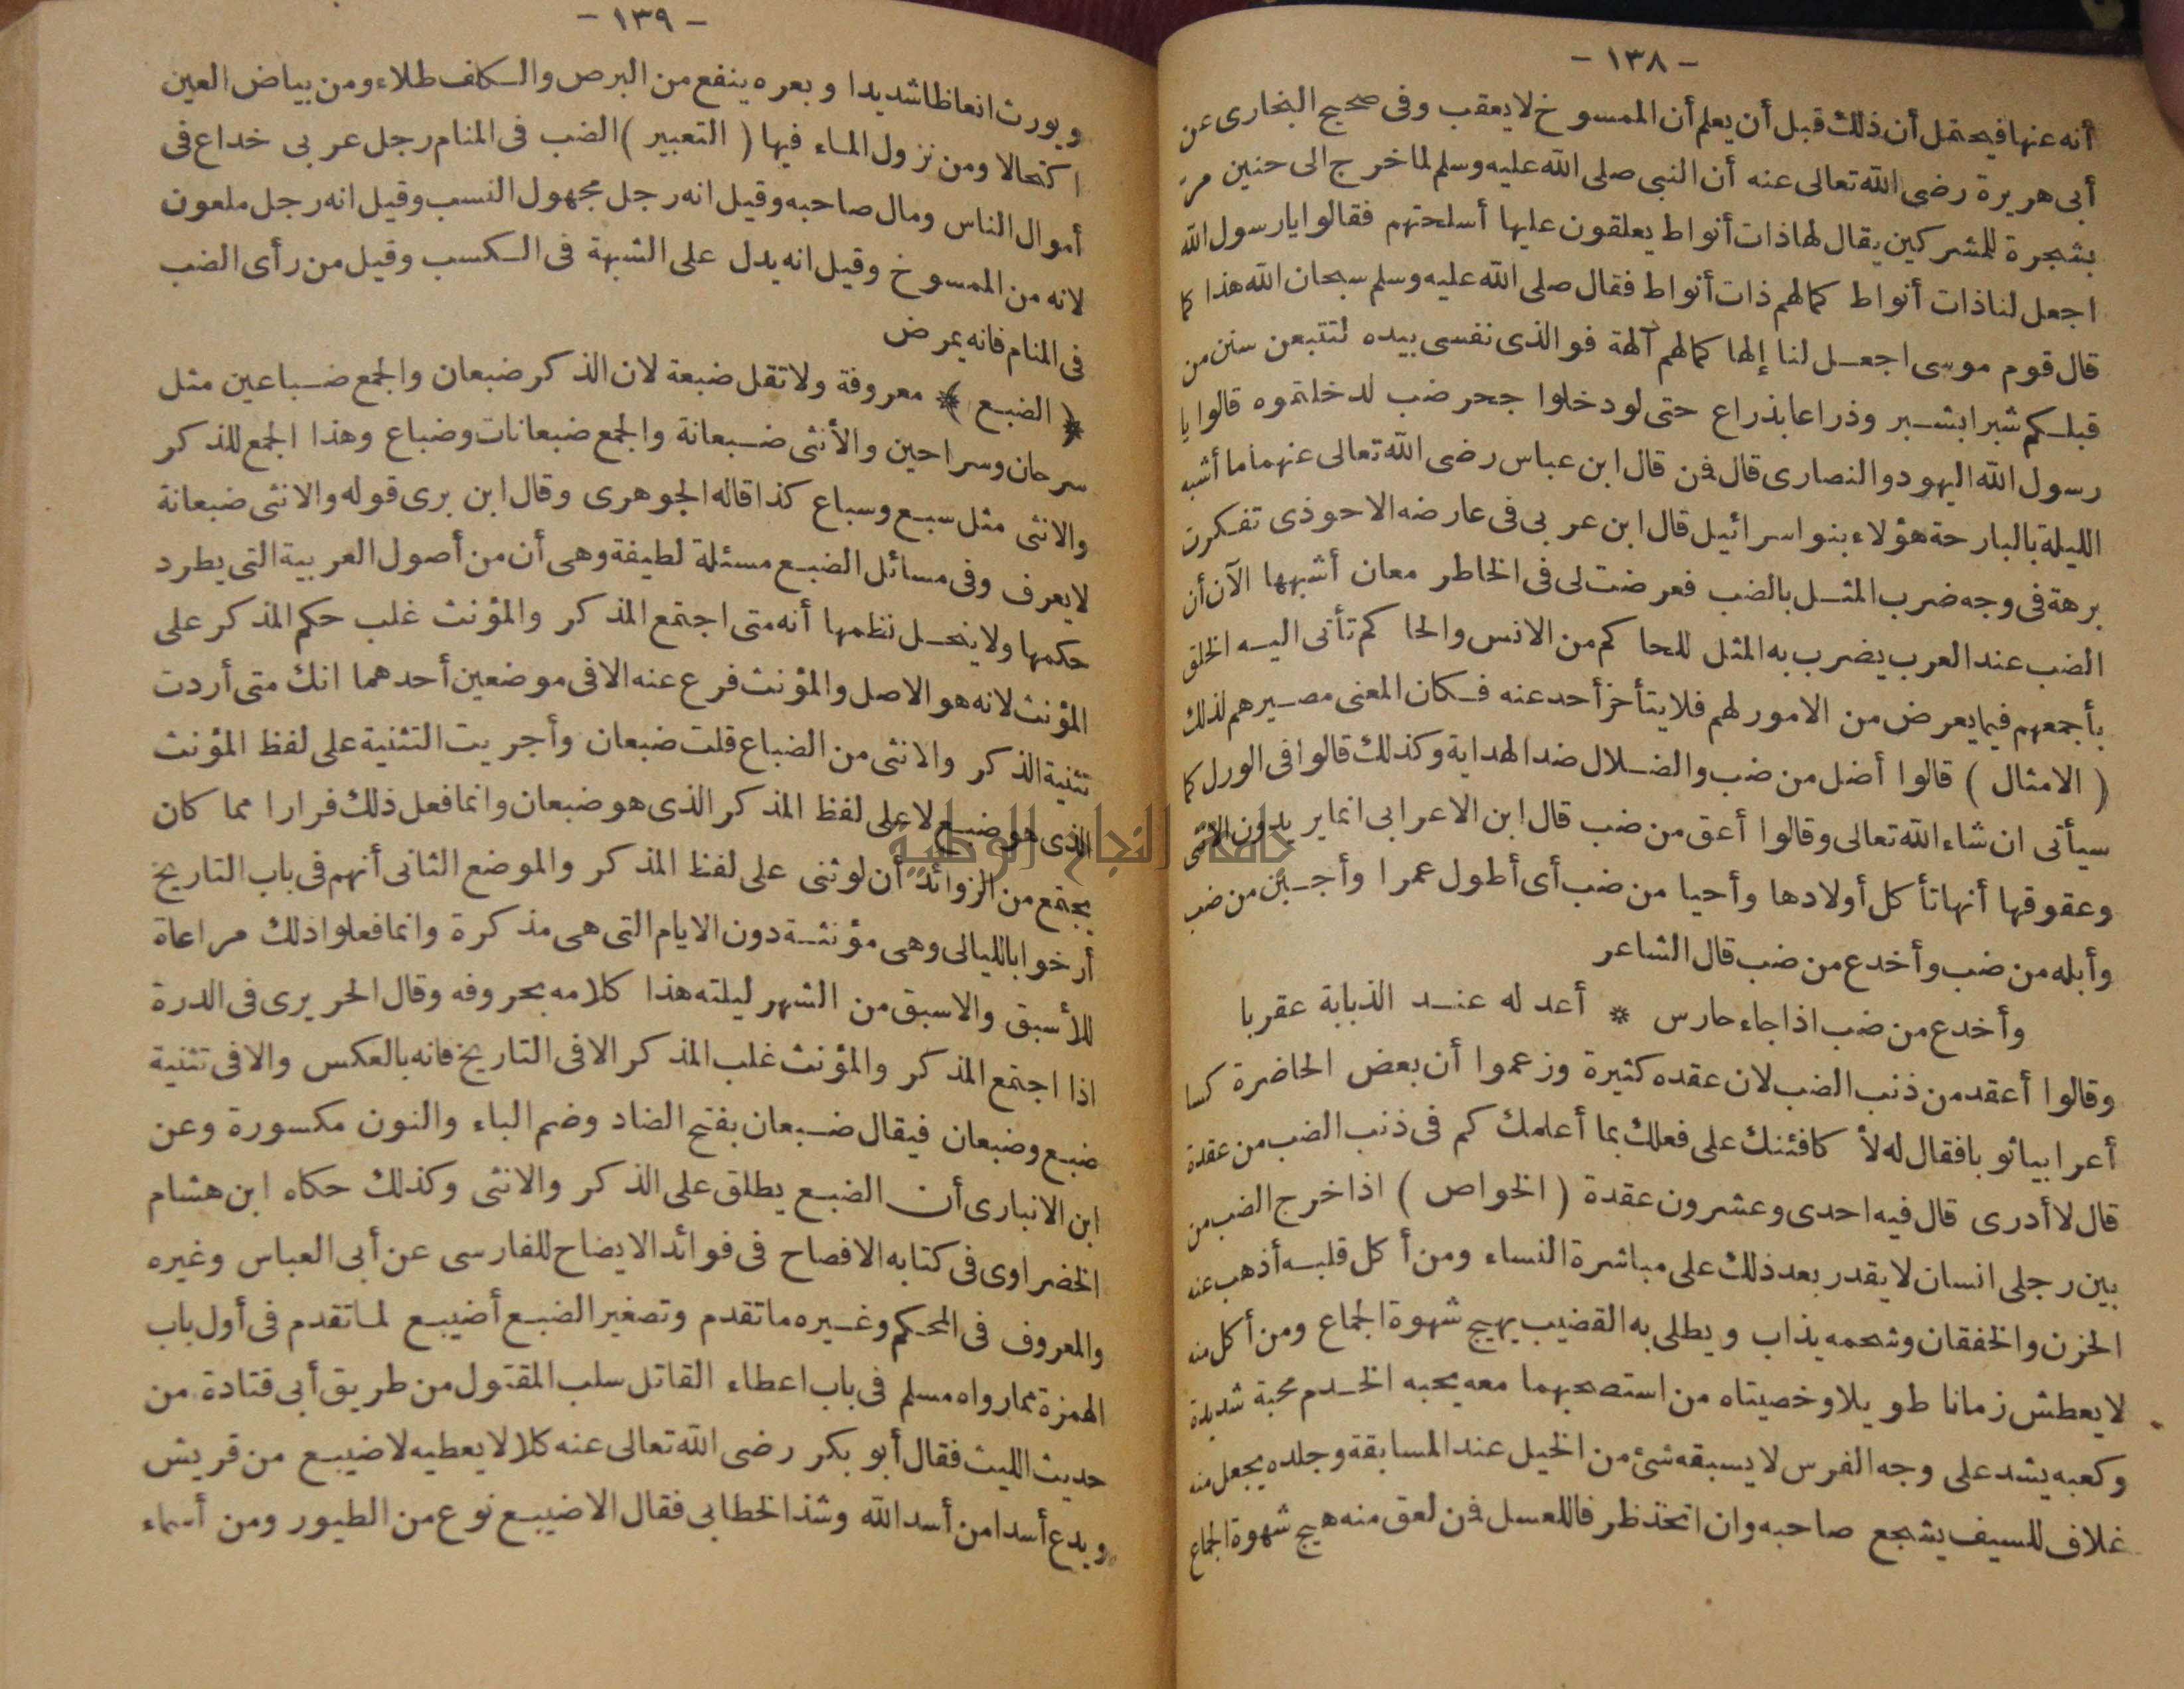 - ١٣٨ -
أنه عنها فيحتمل أن ذلك قبل أن يعلم أن الممسوخ لا يعقب وفى صحيح البخارى عن
أبى هريرة رضى الله تعالى عنه أن النبى صلى الله عليه وسلم لما خرج الى حنين مرّ
بشجرة للمشركين يقال لها ذات أنواط يعلقون عليها أسلحتهم فقالوا يا رسول الله
اجعل لنا ذات أنواط كما لهم ذات أنواط فقال صلى الله عليه وسلم سبحان الله هذا كما
قال قوم موسى اجعل لنا إلها كما لهم آلهة فوالذى نفسى بيده لتتبعن سنن من
قبلكم شبرا بشبر وذراعا بذراع حتى لو دخلوا جحر ضب لدخلتموه قالوا يا
رسول الله اليهود والنصارى قال فمن قال ابن عباس رضى الله تعالى عنهما ما أشبه
الليلة بالبارحة هؤلاء بنو اسرائيل قال ابن عربى فى عارضه الاحوذى تفكرت
برهة فى وجه ضرب المثل بالضب فعرضت لى فى الخاطر معان أشبهها الآن أن
الضب عند العرب يضرب به المثل للحاكم من الانس والحاكم تأتى اليه الخلق
بأجمعهم فيما يعرض من الامور لهم فلا يتأخر أحد عنه فكان المعنى مصيرهم لذلك
( الامثال ) قالوا أضل من ضب والضلال ضد الهداية وكذلك قالوا فى الورل كما
سيأتى ان شاء الله تعالى وقالوا أعق من ضب قال ابن الاعرابى انما يريدون الانثى
وعقوقها أنها تأكل أولادها وأحيا من ضب أى أطول عمرا وأجبن من ضب
وأبله من ضب وأخدع من ضب قال الشاعر
وأخدع من ضب اذا جاء حارس * أعد له عند الذبابة عقربا
وقالوا أعقد من ذنب الضب لان عقده كثيرة وزعموا أن بعض الحاضرة كسا
أعرابيا ثوبا فقال له لأكافئنك على فعلك بما أعلمك كم فى ذنب الضب من عقدة
قال لا أدرى قال فيه احدى وعشرون عقدة ( الخواص ) اذا خرج الضب من
بين رجلى انسان لا يقدر بعد ذلك على مباشرة النساء ومن أكل قلبه أذهب عنه
الحزن والخفقان وشحمه يذاب ويطلى به القضيب يهيج شهوة الجماع ومن أكل منه
لا يعطش زمانا طويلا وخصيتاه من استصحبهما معه يحبه الخدم محبة شديدة
وكعبه يشد على وجه الفرس لا يسبقه شئ من الخيل عند المسابقة وجلده يجعل منه
غلاف للسيف يشجع صاحبه وان اتخذ ظرفا للعسل فمن لعق منه هيج شهوة الجماع
- ١٣٩ -
ويورث انعاظا شديدا وبعره ينفع من البرص والكلف طلاء ومن بياض العين
اكتحالا ومن نزول الماء فيها ( التعبير ) الضب فى المنام رجل عربى خداع فى
أموال الناس ومال صاحبه وقيل انه رجل مجهول النسب وقيل انه رجل ملعون
لانه من الممسوخ وقيل انه يدل على الشبهة فى الكسب وقيل من رأى الضب
فى المنام فانه يمرض
﴿ الضبع ﴾ معروفة ولا تقل ضبعة لان الذكر ضبعان والجمع ضباعين مثل
سرحان وسراحين والأنثى ضبعانة والجمع ضبعانات وضباع وهذا الجمع للذكر
والانثى مثل سبع وسباع كذا قاله الجوهرى وقال ابن برى قوله والانثى ضبعانة
لا يعرف وفى مسائل الضبع مسئلة لطيفة وهى أن من أصول العربية التى يطرد
حكمها ولا ينحل نظمها أنه متى اجتمع المذكر والمؤنث غلب حكم المذكر على
المؤنث لانه هو الاصل والمؤنث فرع عنه الا فى موضعين أحدهما انك متى أردت
تثنية الذكر والانثى من الضباع قلت ضبعان وأجريت التثنية على لفظ المؤنث
الذى هو ضبع لا على لفظ المذكر الذى هو ضبعان وانما فعل ذلك فرارا مما كان
يجتمع من الزوائد أن لو ثنى على لفظ المذكر والموضع الثانى أنهم فى باب التاريخ
أرخوا بالليالى وهى مؤنثة دون الايام التى هى مذكرة وانما فعلوا ذلك مراعاة
للأسبق والاسبق من الشهر ليلته هذا كلامه بحروفه وقال الحريرى فى الدرة
اذا اجتمع المذكر والمؤنث غلب المذكر الا فى التاريخ فانه بالعكس والا فى تثنية
ضبع وضبعان فيقال ضبعان بفتح الضاد وضم الباء والنون مكسورة وعن
ابن الانبارى أن الضبع يطلق على الذكر والانثى وكذلك حكاه ابن هشام
الخضراوى فى كتابه الافصاح فى فوائد الايضاح للفارسى عن أبى العباس وغيره
والمعروف فى المحكم وغيره ما تقدم وتصغير الضبع أضيبع لما تقدم فى أول باب
الهمزة مما رواه مسلم فى باب اعطاء القاتل سلب المقتول من طريق أبى قتادة من
حديث الليث فقال أبو بكر رضى الله تعالى عنه كلا لا يعطيه لاضيبع من قريش
ويدع أسدا من أسد الله وشذ الخطابى فقال الاضيبع نوع من الطيور ومن أسماء
جامعة النجاح الوطنية